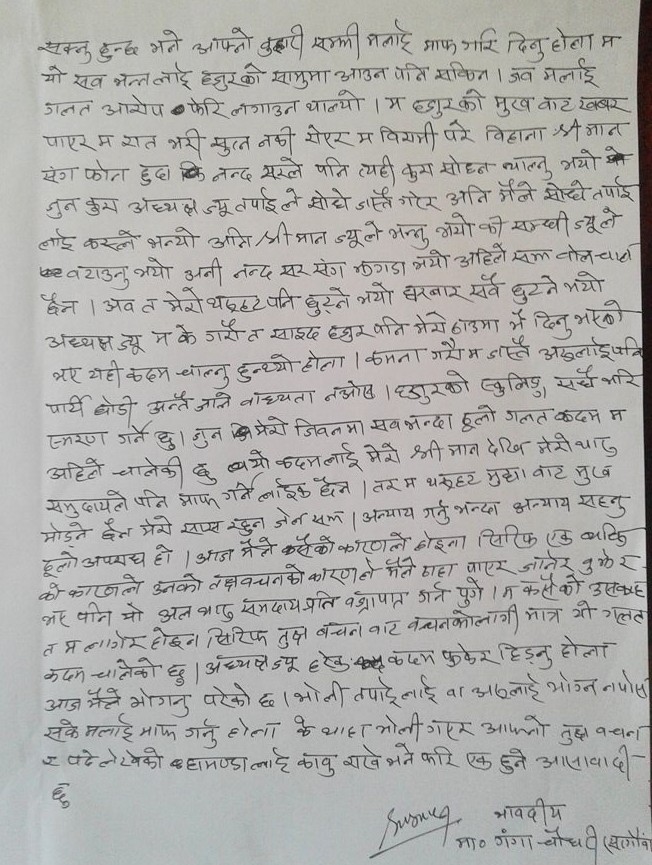 सक्नु हुन्छ भने आफ्नो बुहारी सम्झी मलाई माफ गरि दिनु होला म
यो सब भन्न लाई हजुरको सामुमा आउन पनि सकिन । जब मलाई
गलत आरोप फेरि लगाउन थाल्यो । म हजुरको मुख बाट खबर
पाएर म रात भरी सुत्न नकी रोएर म विरामी परे विहाना श्री मान
संग फोन हुदा कि नन्द सरले पनि त्यही कुरा सोध्न थाल्नु भयो
जुन कुरा अध्यक्ष ज्यू तपाई ले सोधे जस्तै गरेर अनि मैले सोधे तपाई
लाई कस्ले भन्यो अनि श्री मान ज्यूले भन्नु भयो की सम्धी ज्यूले
बताउनु भयो अनी नन्द सर संग झगडा भयो अहिले सम्म बोल-चाल
छैन । अब त मेरो थरुहट पनि छुट्ने भयो घरबार सबै छुटने भयो
अध्यक्ष ज्यू म के गरौ त साइद हजुर पनि मेरो ठाउमा भै दिनु भएको
भए यही कदम चाल्नु हुन्थ्यो होला । कामना गरौ म जस्तै अरुलाई पनि
पार्टी छोडी अन्तै जाने वाध्यता नआोस । हजुरको सधै भरि
स्मरण गर्ने छु । जुन मेरो जिवनमा सब भन्दा ठूलो गलत कदम म
अहिले चालेकी छु यो कदमलाई मेरो श्री मान देखि मेरो थारु
समुदायले पनि माफ गर्ने लाईक छैन । तर म थरुहट मुद्दा बाट मुख
मोड्ने छैन मेरो सास रहुन जेल सम्म । अन्याय गर्नु भन्दा अन्याय सहनु
ठूलो अपराध हो । आज मैले कसैको कारणले होइना सिरिफ एक व्यक्ति
को कारणले उनको तुक्ष वचनको कारणले मैले थाहा पाएर जानेर बुझेर
भए पनि यो अल थारु समुदाय प्रति गर्न पुगे । म कसैको
त म लागेर होइन। सिरिफ तुक्ष बचन बाट बच्चनकोलागी मात्र यो गलत
कदम चालेको छु । अध्यक्ष ज्यू हरेक कदम फुकेर हिड्नु होला
आज मैले भोग्नु परेको छ । भोली तपाई लाई वा अरुलाई भोग्न नपरोस
सके मलाई माफ गर्नु होला के थाहा भोली गएर आफ्नो तुक्ष वचन
र लाई काबु राखे भने फेरि एक हुने आसावादी
छु
भवदीय
मा० गंगा चौधरी